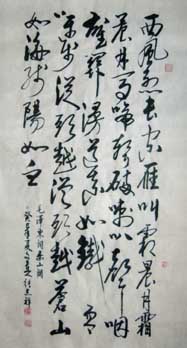 西風烈長空雁叫霜晨月霜
晨月馬蹄聲碎喇叭聲咽
雄關漫道真如鐵而
今邁步從頭越從頭越蒼山
如海殘陽如血
毛澤東詞婁山關